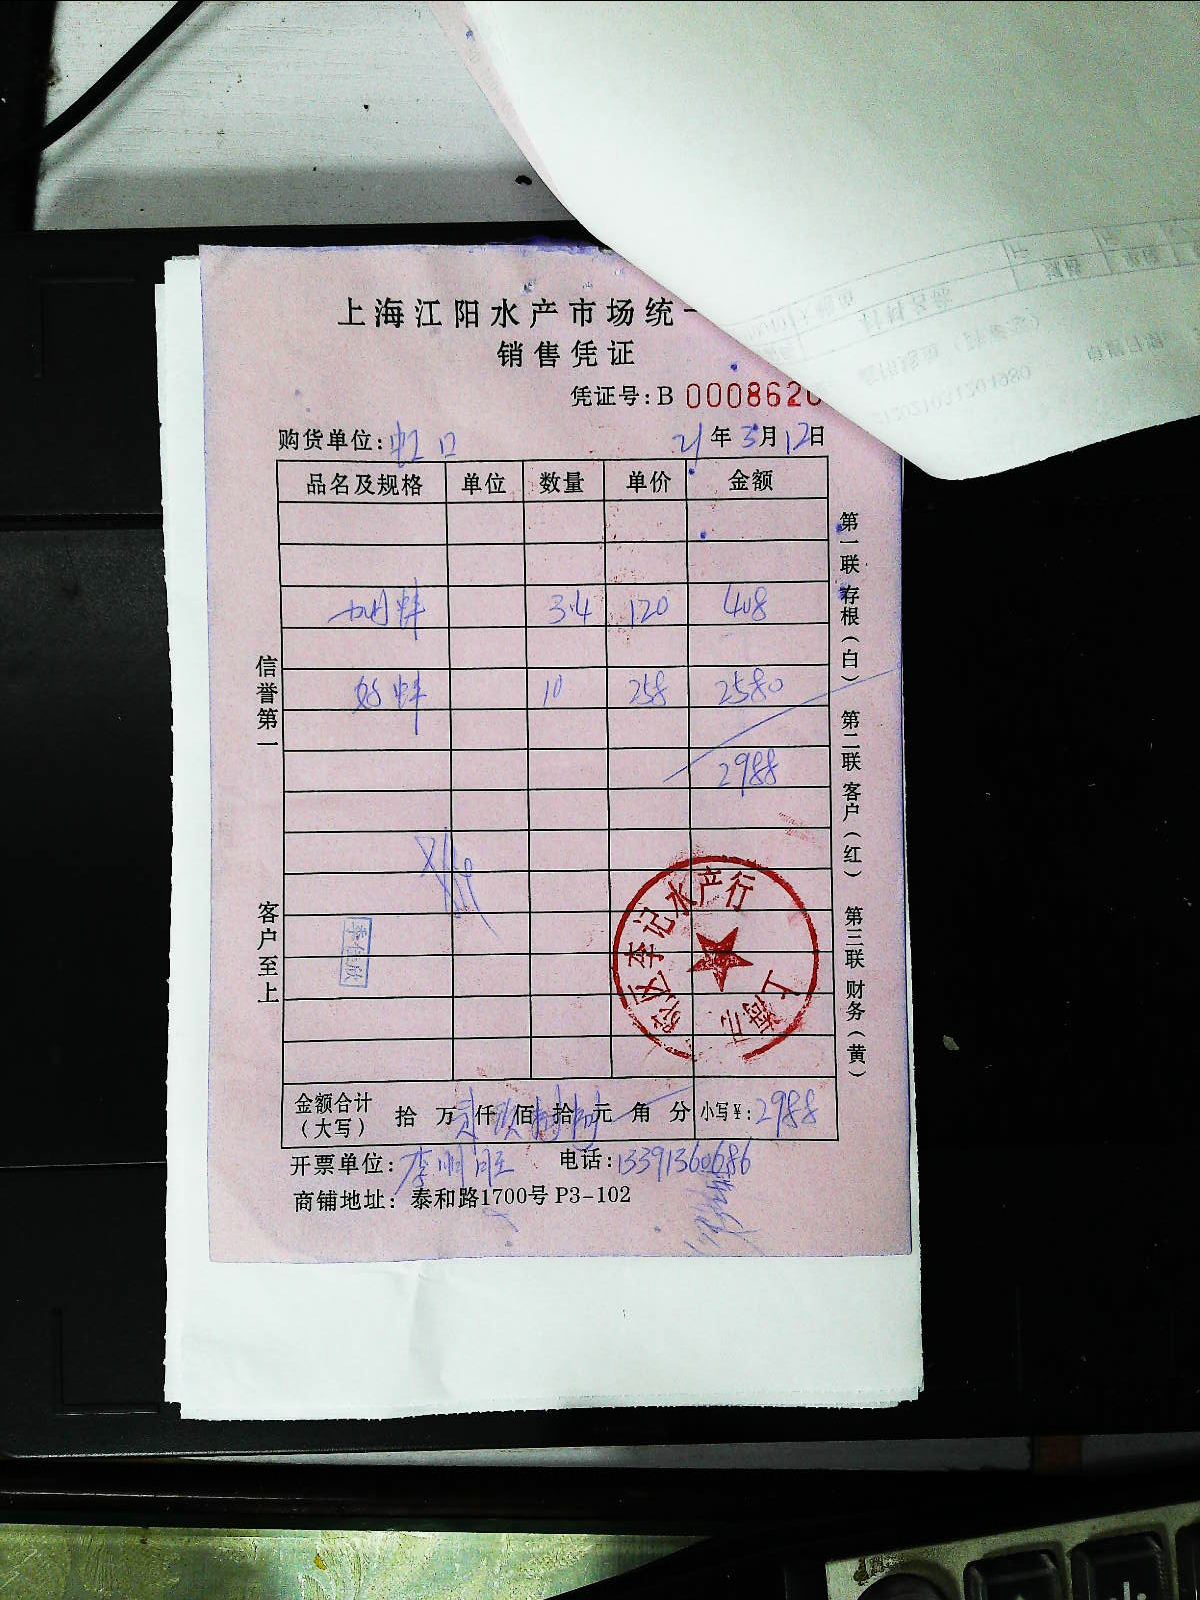 上海江阳水产市场统一
销售凭证
凭证号: B 0008620
购货单位: 虹口 21年3月12日
品名及规格 单位 数量 单价 金额
3.4 120 408
10 258 2580
2988
信誉第一
客户至上
第一联 存根(白) 第二联 客户(红) 第三联 财务(黄)
李记水产行
上海
金额合计(大写) 拾 万 贰 仟 玖 佰 捌 拾 捌 元 角 分 小写¥: 2988
开票单位: 李明旺 电话: 13391360686
商铺地址: 泰和路1700号 P3-102